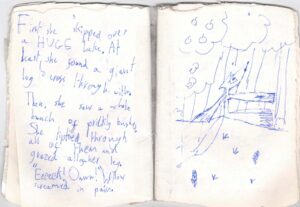 First she skipped over
a HUGE lake. At
least, she found a giant
log to cross through with.
Then, she saw a whole
bunch of prickly bushes.
She through
all of them and
grazed all her legs
"Eeeech! Owww!" Willow
screamed in pain.